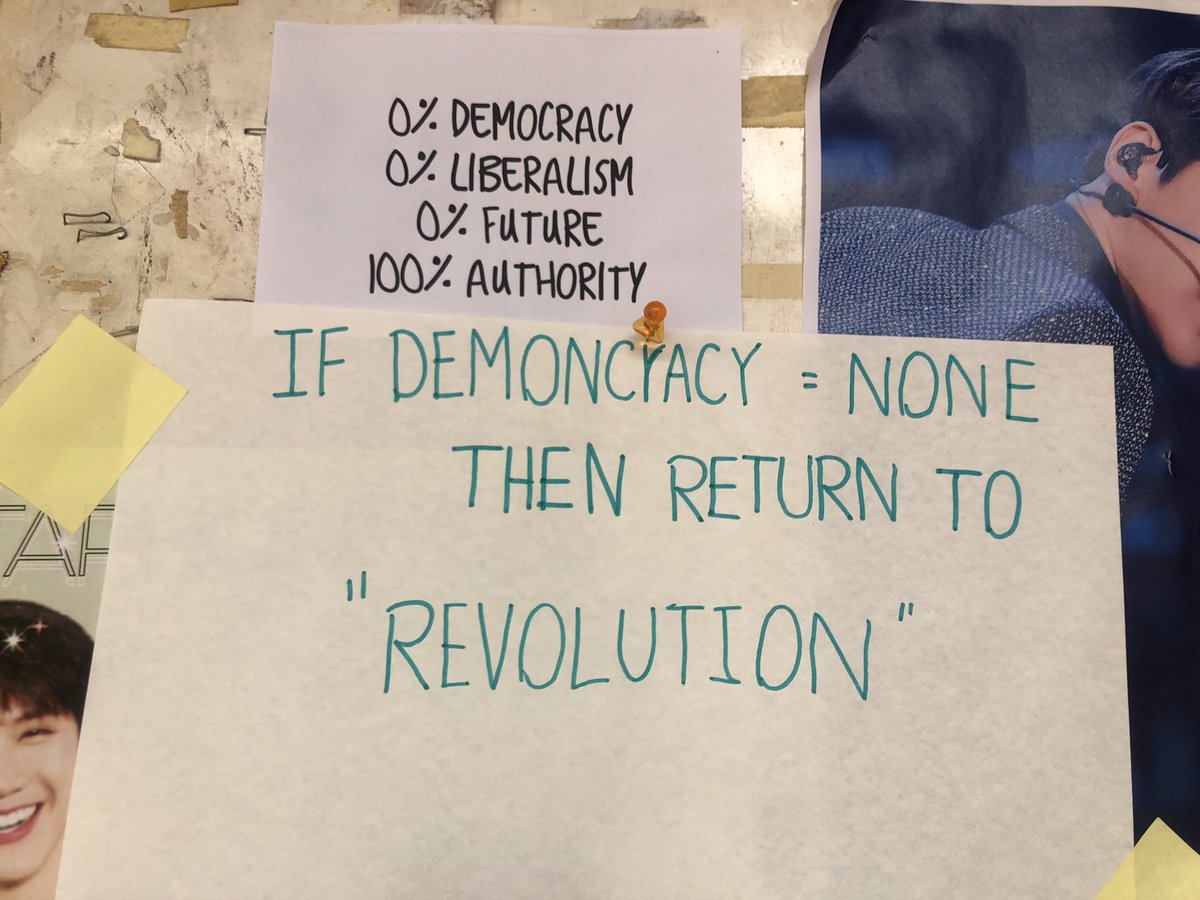 0% DEMOCRACY
0% LIBERALISM
0% FUTURE
100% AUTHORITY
IF DEMONCYACY = NONE
THEN RETURN TO
"REVOLUTION"